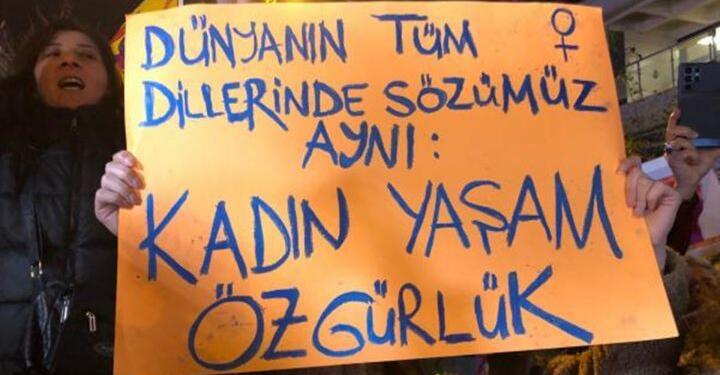 DÜNYANIN TÜM ♀
DİLLERİNDE SÖZÜMÜZ
AYNI:
KADIN YAŞAM
ÖZGÜRLÜK